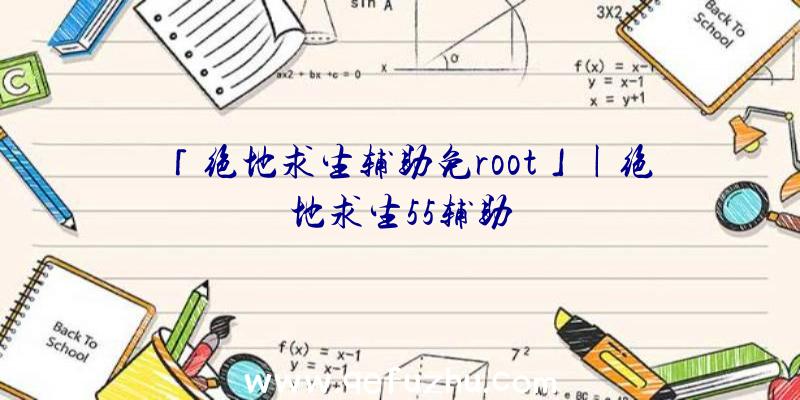 sin A
3X2
Back To
School
C
ax2 + bx +c = 0
x
α
f(x) = x-1
y = x-1
x = y+1
「绝地求生辅助免root」|绝
地求生55辅助
Back To
School
f(x) = x-1
y = x-1
7²